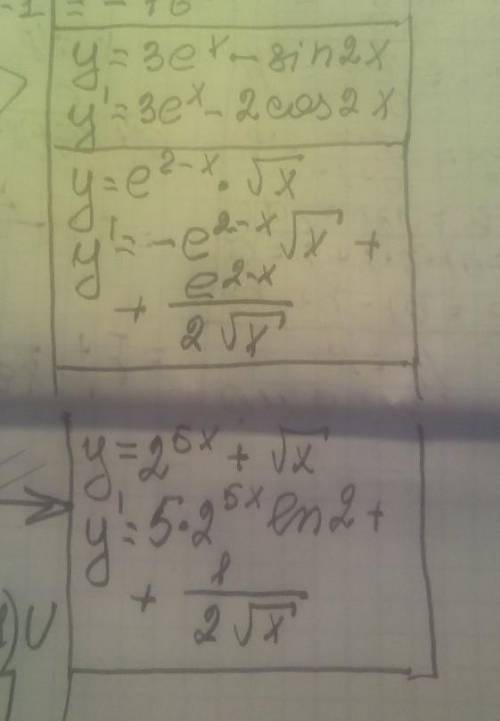 -1 = -
y = 3eˣ - sin2x
y' = 3eˣ - 2cos2x
y = e²⁻ˣ · √x
y' = -e²⁻ˣ √x +
+ e²⁻ˣ / 2√x
y = 2⁵ˣ + √x
y' = 5·2⁵ˣ ln2 +
+ 1 / 2√x
) U